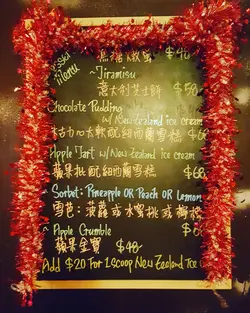 Menu
$40
~ Tiramisu
意大利芝士餅 $50
Chocolate Pudding
w/ New Zealand ice cream
$60
Apple Tart w/ New Zealand ice cream
蘋果批配紐西蘭雪糕 $60
~ Sorbet: Pineapple OR Peach OR Lemon
雪芭: 菠蘿或水蜜桃或檸檬
~ Apple Crumble
蘋果金寶 $40
Add $20 For 1 Scoop New Zealand Ice